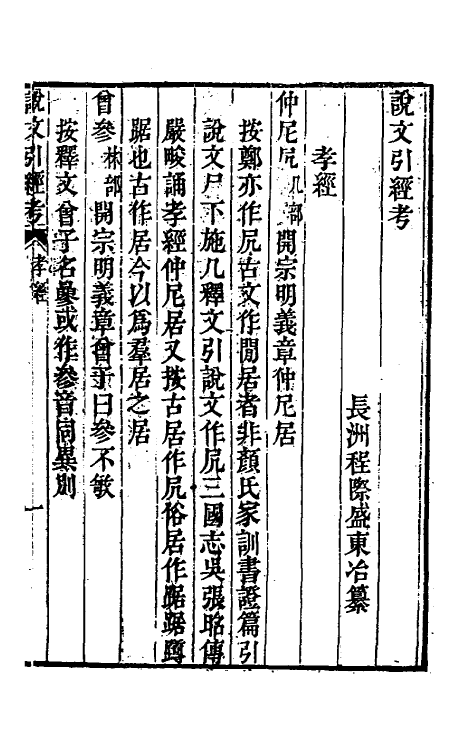 說文引經考
長洲程際盛東冶纂
孝經
仲尼凥几部開宗明義章仲尼居
按鄭亦作凥古文作閒居者非顏氏家訓書證篇引
說文尸下施几釋文引說文作凥三國志吳張昭傳
嚴畯誦孝經仲尼居又按古居作凥俗居作踞踞蹲
踞也古作居今以為羣居之居
曾參林部開宗明義章曾子曰參不敏
按釋文曾子名參或作參音同異則
說文引經考 孝經 一